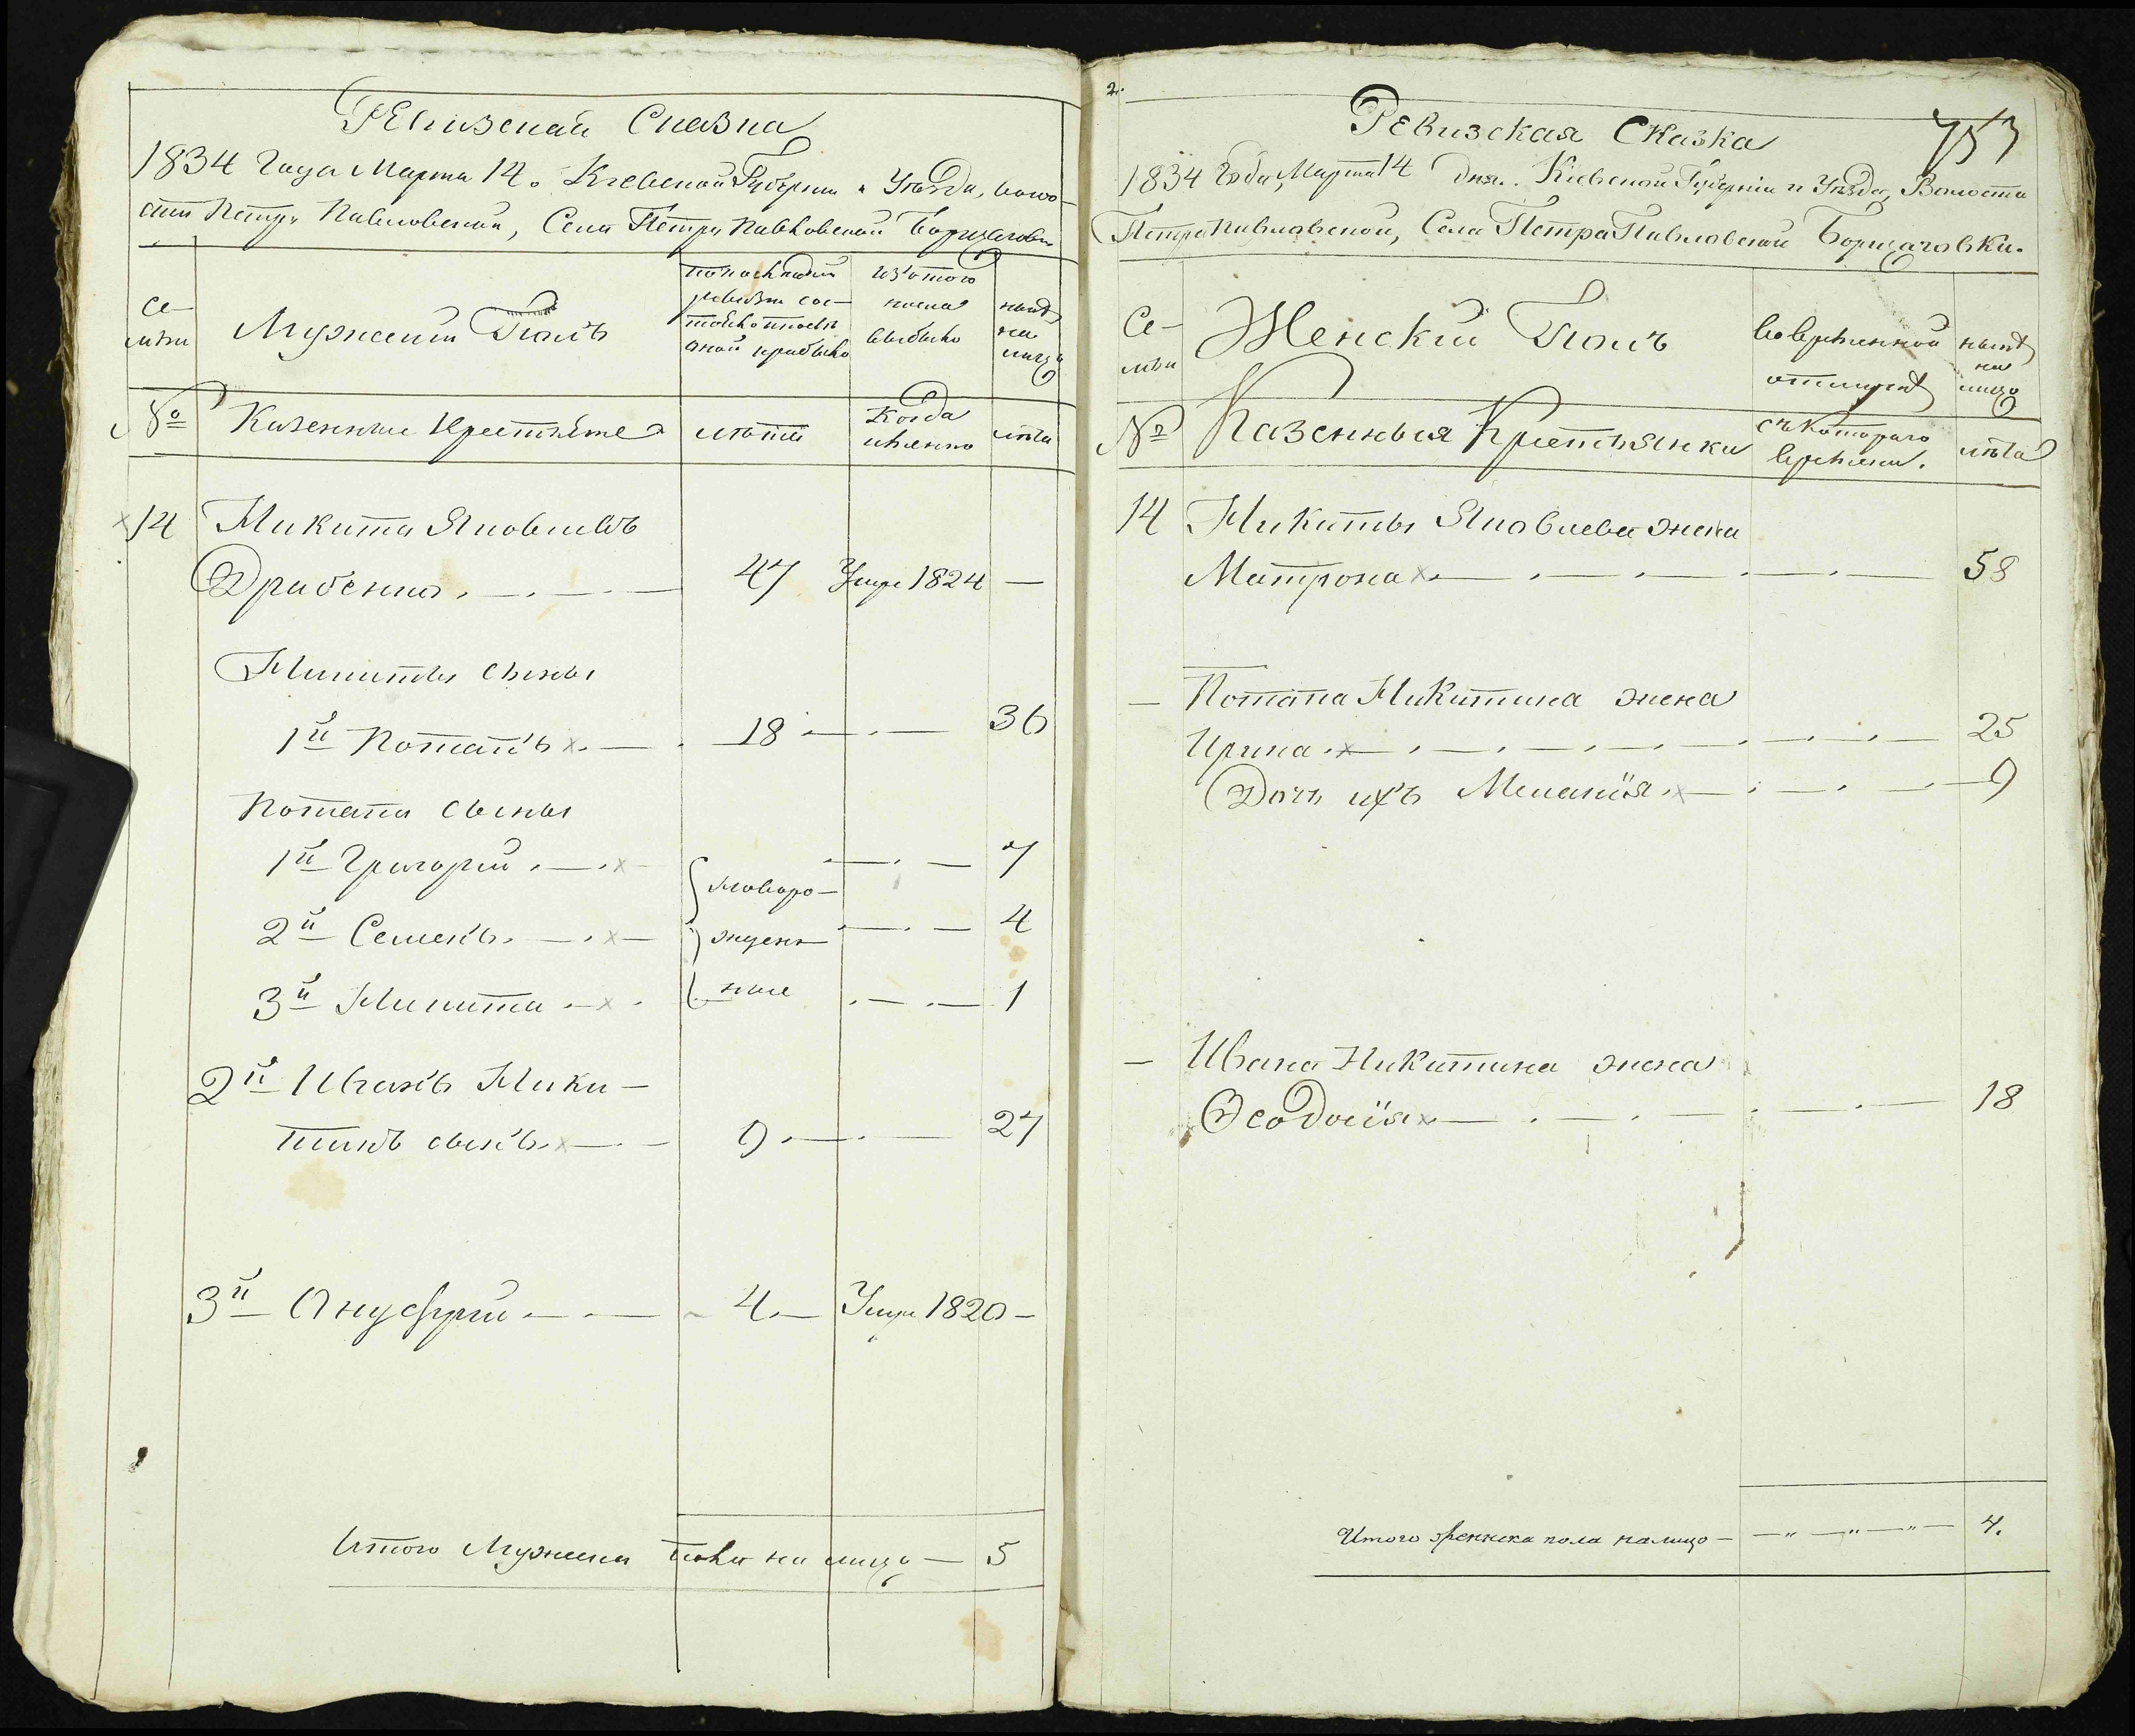 Ревизская Сказка
1834 Года Марта 14. Киевской Губернии и Уѣзда, воло-
сти Петро Павловской, Села Петро Павловской Борщаговки
Се-
мьи
Мужеский Полъ
по последней
ревизии сос-
тояло и после
оной прибыло
изъ того
числа
выбыло
нынѣ
на
лицо
№
Казенные Крестьяне
лѣта
Когда
именно
лѣта
14 Микита Яковлевъ
Драбенко 47 Умре 1824 —
Микиты сыны
1й Потапъ 18 36
Потапа сыны
1й Григорий 7
новоро-
2й Семенъ 4
жден-
3й Микита ные 1
2й Иванъ Мики-
тинъ сынъ 9 27
3й Онуфрий 4 Умре 1820 —
Итого Мужеска пола на лицо — 5
2.
Ревизская Сказка
753
1834 Года, Марта 14 дня. Киевской Губернии и Уѣзда, Волости
Петро Павловской, Села Петро Павловской Борщаговки.
Се-
мьи
Женский Полъ
во временной
отлучкѣ
нынѣ
на
лицо
№
Казенныя Крестьянки
съ котораго
времени.
лѣта
14 Микиты Яковлева жена
Матрона 58
— Потапа Микитина жена
Ирина 25
Дочь ихъ Меланія 9
— Ивана Микитина жена
Ѳеодосія 18
Итого женска пола налицо — 4.